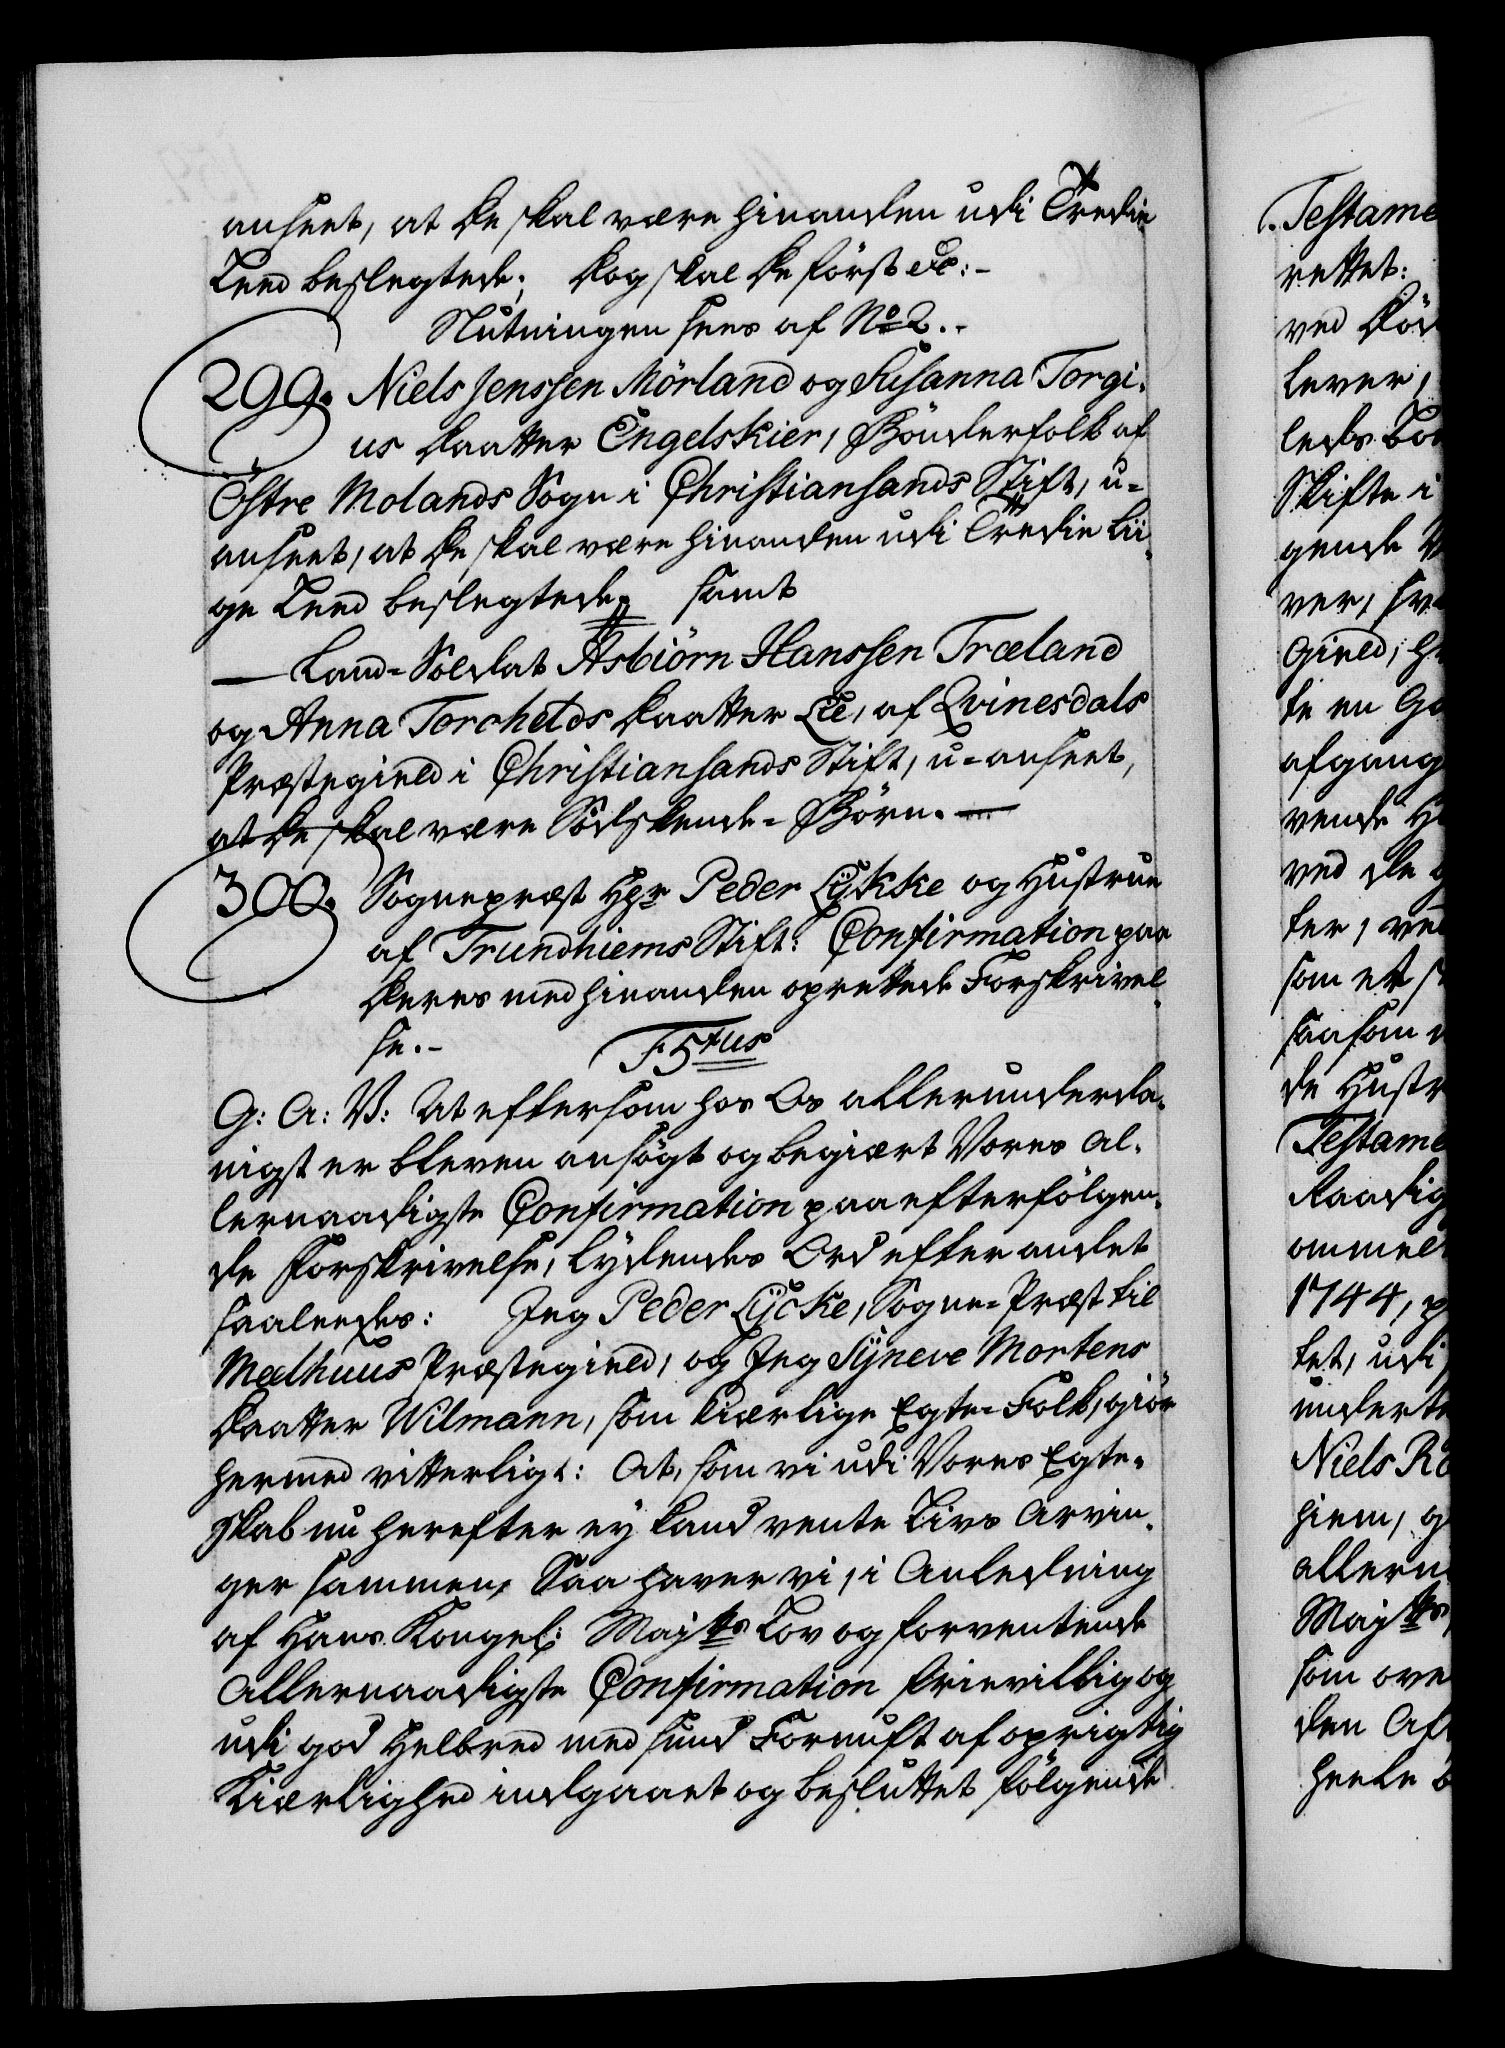 anseet, at de skal være hinanden udi Tredie
Leed beslegtede; dog skal de först &c:-
Slutningen sees af No 2.-
299. Niels Jenssen Mörland og Susanna Torgi-
us Daatter Engelskier, Bönderfolk af
Östre Molands Sogn i Christiansands Stift, u-
anseet, at de skal være hinanden udi Tredie Lii-
ge Leed beslegtede, samt
— Land-Soldat Asbiörn Hanssen Træland
og Anna Torchelds Daatter Lie, af Qvinesdals
Præstegield i Christiansands Stift, u-anseet,
at de skal være Södskende-Börn. —
300. Sognepræst Hr Peder Lÿkke og Hustrue
af Trundhiems Stift: Confirmation paa
deres med hinanden oprettede Forskrivel-
se.-
F5tus
G: A: V: At eftersom hos Os allerunderda-
nigst er bleven ansögt og begiært Vores Al-
lernaadigste Confirmation paa efterfölgen-
de Forskrivelse, lydendes Ord efter andet
saaleedes: Jeg Peder Lÿcke, Sogne-Præst til
Melhuus Præstegield, og Jeg Sÿneve Mortens
Daatter Wilmann, som kiærlige Egte-Folk, giör
hermed vitterligt: At, som vi udi Vores Egte-
skab nu herefter ey kand vente Livs Arvin-
ger sammen, Saa haver vi, i Anledning
af Hans Kongel: Majts Lov og forventende
Allernaadigste Confirmation frievillig og
udi god Helbred med sund Fornuft af oprigtig
Kiærlighed indgaaet og besluttet fölgende
Testame
rettet:
ved Död
lever,
leds Bo
Skifte i
gende
ver, hv
Gield,
te en Go
afgang
vende H
ved de
ter, ved
som et
saasom
de Hustr
Testame
Raadig
ommel
1744, p
tet, udi
underte
Niels Ro
hiem, g
allern
Majts
som ove
den Af
heele b